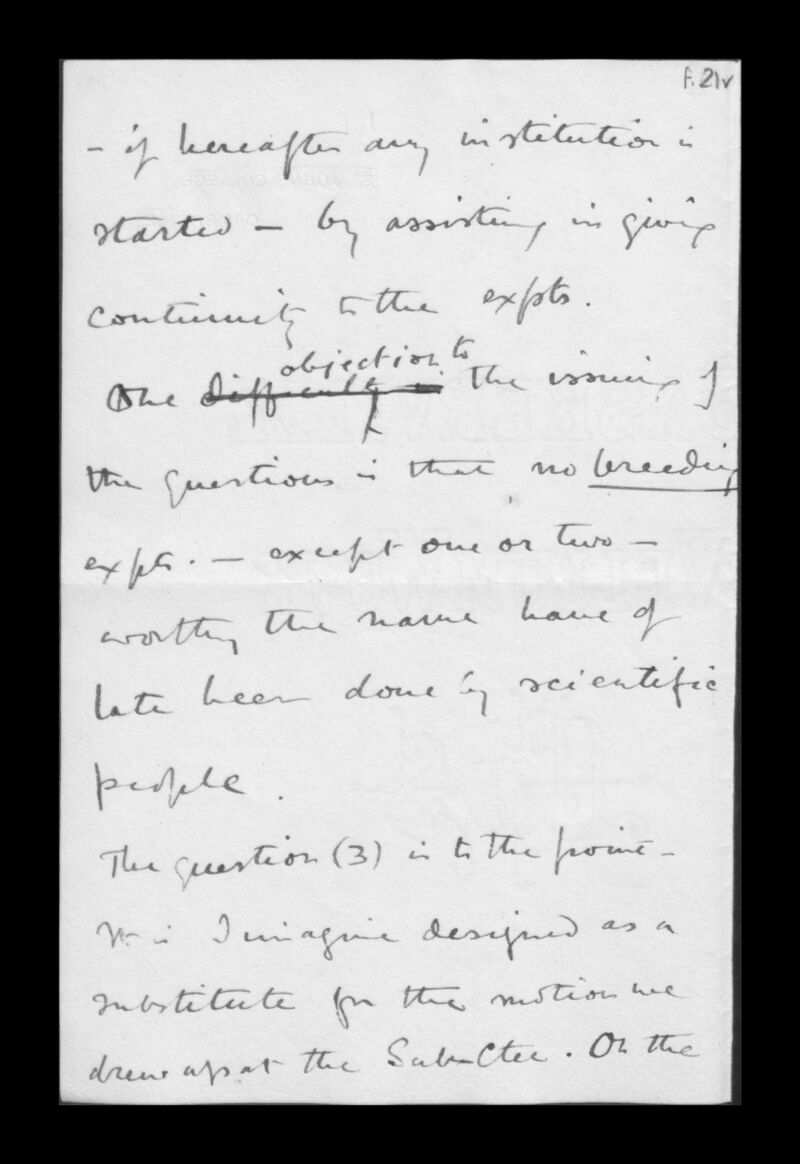 f.21v
- if hereafter any institution is
started - by assisting in giving
continuity to the expts.
objection to
One difficulty is the issuing of
the questions is that no breeding
expts. - except one or two -
worthy the name have of
late been done by scientific
people.
The question (3) is to the point -
It is I imagine designed as a
substitute for the motion we
drew up at the Sub-Ctee. On the